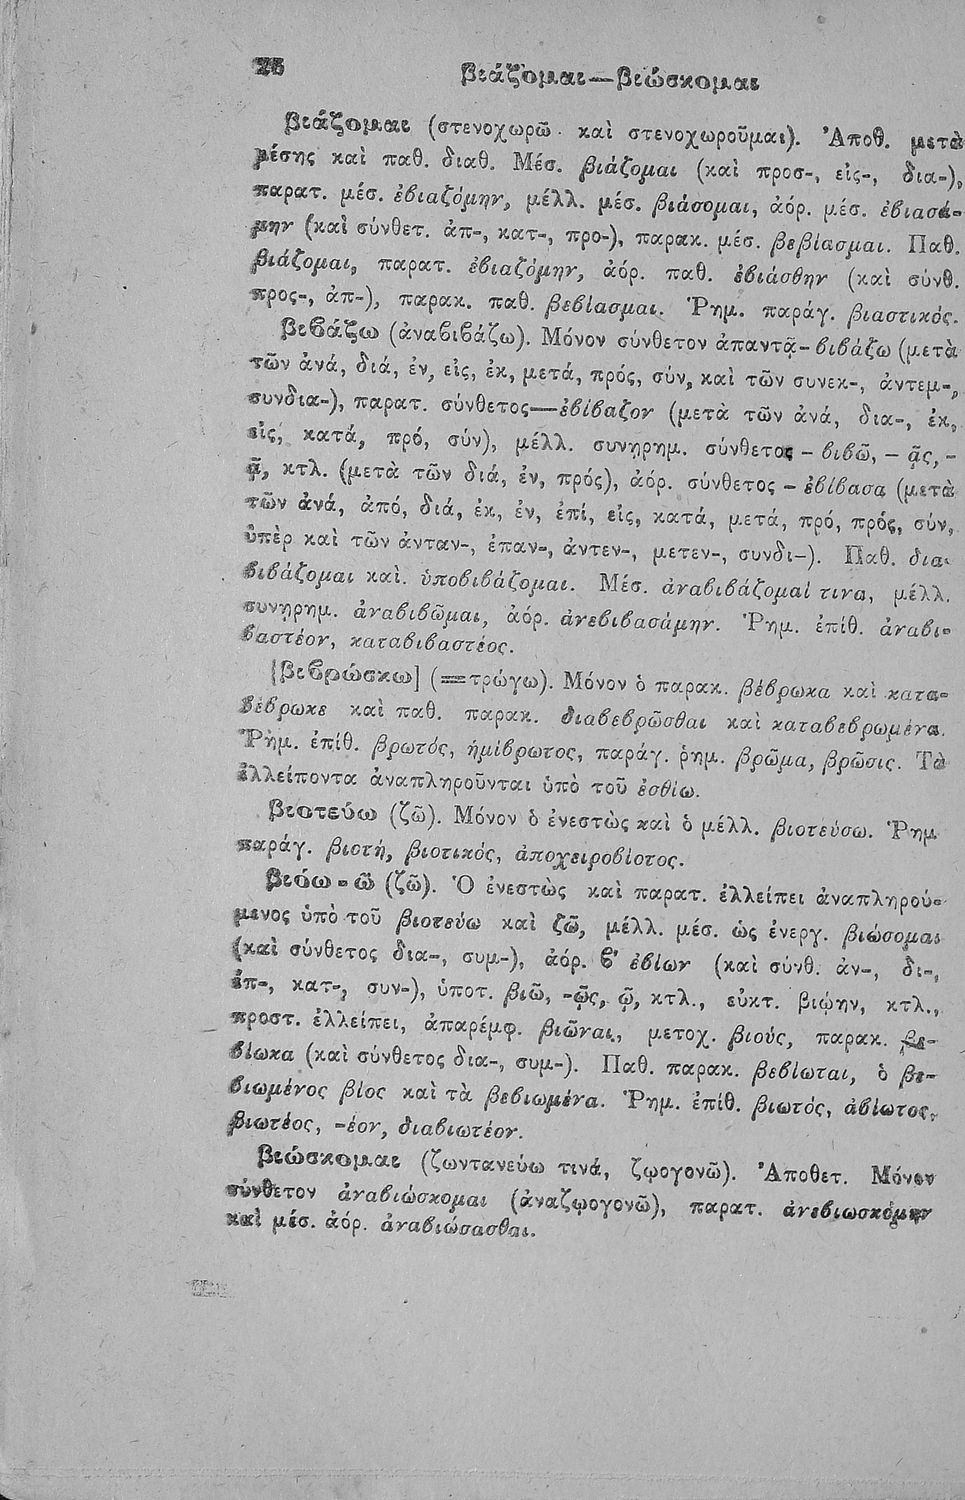 26
βιάζομαι—βιώσκομαι
βιάζομαι (στενοχωρῶ καὶ στενοχωροῦμαι). Ἀποθ. μετὰ
μέσης καὶ παθ. διαθ. Μέσ. βιάζομαι (καὶ προσ-, εἰς-, δια-),
παρατ. μέσ. ἐβιαζόμην, μέλλ. μέσ. βιάσομαι, ἀόρ. μέσ. ἐβιασά-
μην (καὶ σύνθετ. ἀπ-, κατ-, προ-), παρακ. μέσ. βεβίασμαι. Παθ.
βιάζομαι, παρατ. ἐβιαζόμην, ἀόρ. παθ. ἐβιάσθην (καὶ σύνθ.
προς-, ἀπ-), παρακ. παθ. βεβίασμαι. Ῥημ. παράγ. βιαστικός.
βιβάζω (ἀναβιβάζω). Μόνον σύνθετον ἀπαντᾷ-βιβάζω (μετὰ
τῶν ἀνά, διά, ἐν, εἰς, ἐκ, μετά, πρός, σύν, καὶ τῶν συνεκ-, ἀντεμ-,
συνδια-), παρατ. σύνθετος—ἐβίβαζον (μετὰ τῶν ἀνά, δια-, ἐκ,
εἰς, κατά, πρό, σύν), μέλλ. συνῃρημ. σύνθετος - βιβῶ, - ᾷς, -
ᾷ, κτλ. (μετὰ τῶν διά, ἐν, πρός), ἀόρ. σύνθετος - ἐβίβασα (μετὰ
τῶν ἀνά, ἀπό, διά, ἐκ, ἐν, ἐπί, εἰς, κατά, μετά, πρό, πρός, σύν,
ὑπὲρ καὶ τῶν ἀνταν-, ἐπαν-, ἀντεν-, μετεν-, συνδι-). Παθ. δια-
βιβάζομαι καὶ. ὑποβιβάζομαι. Μέσ. ἀναβιβάζομαί τινα, μέλλ.
συνῃρημ. ἀναβιβῶμαι, ἀόρ. ἀνεβιβασάμην. Ῥημ. ἐπίθ. ἀναβι-
βαστέον, καταβιβαστέος.
[βιβρώσκω] (=τρώγω). Μόνον ὁ παρακ. βέβρωκα καὶ κατα-
βέβρωκε καὶ παθ. παρακ. διαβεβρῶσθαι καὶ καταβεβρωμένα.
Ῥημ. ἐπίθ. βρωτός, ἡμίβρωτος, παράγ. ῥημ. βρῶμα, βρῶσις. Τὰ
ἐλλείποντα ἀναπληροῦνται ὑπὸ τοῦ ἐσθίω.
βιοτεύω (ζῶ). Μόνον ὁ ἐνεστὼς καὶ ὁ μέλλ. βιοτεύσω. Ῥημ
παράγ. βιοτή, βιοτικός, ἀποχειροβίοτος.
βιόω - ῶ (ζῶ). Ὁ ἐνεστὼς καὶ παρατ. ἐλλείπει ἀναπληρού-
μενος ὑπὸ τοῦ βιοτεύω καὶ ζῶ, μέλλ. μέσ. ὡς ἐνεργ. βιώσομαι
(καὶ σύνθετος δια-, συμ-), ἀόρ. β' ἐβίων (καὶ σύνθ. ἀν-, δι-,
ἐπ-, κατ-, συν-), ὑποτ. βιῶ, -ῷς, ῷ, κτλ., εὐκτ. βιῴην, κτλ.,
προστ. ἐλλείπει, ἀπαρέμφ. βιῶναι, μετοχ. βιούς, παρακ. βε-
βίωκα (καὶ σύνθετος δια-, συμ-). Παθ. παρακ. βεβίωται, ὁ βε-
βιωμένος βίος καὶ τὰ βεβιωμένα. Ῥημ. ἐπίθ. βιωτός, ἀβίωτος,
βιωτέος, -έον, διαβιωτέον.
βιώσκομαι (ζωντανεύω τινά, ζῳογονῶ). Ἀποθετ. Μόνον
σύνθετον ἀναβιώσκομαι (ἀναζῳογονῶ), παρατ. ἀνεβιωσκόμην
καὶ μέσ. ἀόρ. ἀναβιώσασθαι.